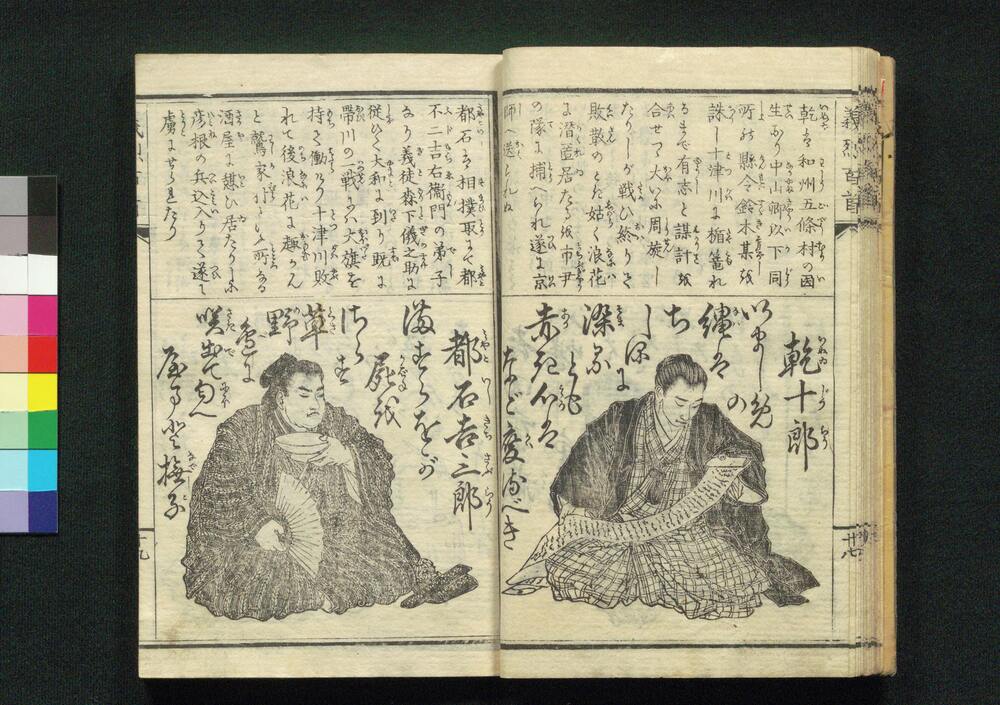 義烈百首
乾は和州五條村の国
生なり中山卿以下同
所の縣令鈴木某を
誅し十津川に楯篭れ
るまで有志と謀計を
合せて大いに周旋し
たりしが戦ひ終りて
敗散のとき姑く浪花
に潜匿居たるを市尹
の隊に捕へられ遂に京
師へ送られぬ
乾十郎
いましめの
縄は
ち
しほに
染る
とも
赤き心は
などか変るべき
都石は相撲取にて都
不二吉右衞門の弟子
なり義徒森下儀之助に
従ひて大和に到り既に
帯川の一戦には大旗を
持て働けり十津川敗
れて後浪花に趣かん
と鷲家
といふ所なる
酒屋に憩ひ居たりしに
彦根の兵込入りて遂に
虜にせられたり
都石吉三郎
ますらをが
屍を
さらす
草
野
辺に
咲出て匂へ
大和撫子